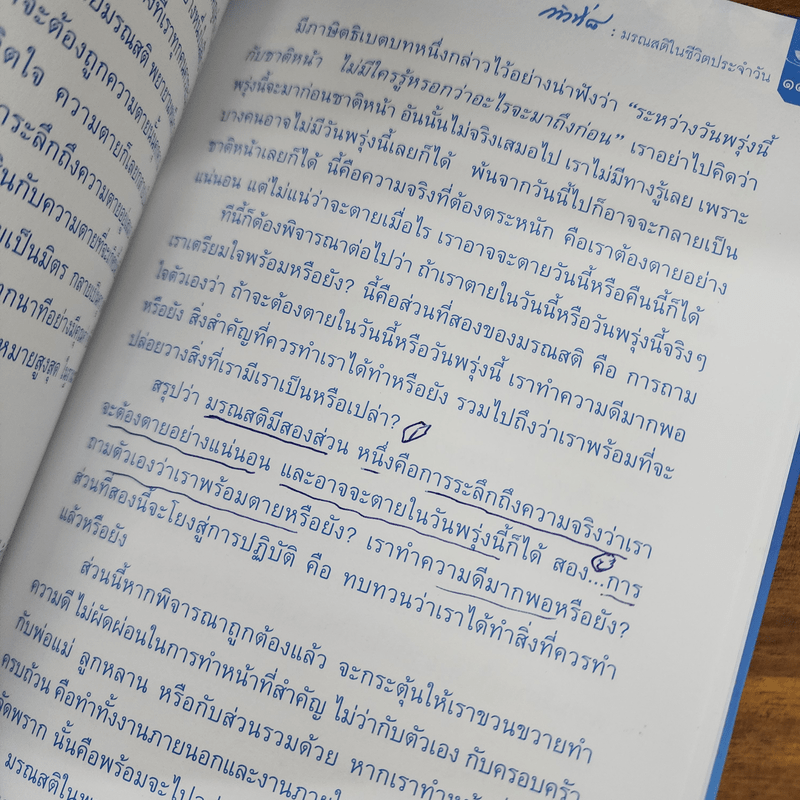 : มรณสติในชีวิตประจำวัน
มีภาษิตธิเบตบทหนึ่งกล่าวไว้อย่างน่าฟังว่า “ระหว่างวันพรุ่งนี้
กับชาติหน้า ไม่มีใครรู้หรอกว่าอะไรจะมาถึงก่อน” เราอย่าไปคิดว่า
พรุ่งนี้จะมาก่อนชาติหน้า อันนั้นไม่จริงเสมอไป เราไม่มีทางรู้เลย เพราะ
บางคนอาจไม่มีวันพรุ่งนี้เลยก็ได้ พ้นจากวันนี้ไปก็อาจจะกลายเป็น
ชาติหน้าเลยก็ได้ นี้คือความจริงที่ต้องตระหนัก คือเราต้องตายอย่าง
แน่นอน แต่ไม่แน่ว่าจะตายเมื่อไร เราอาจจะตายวันนี้หรือคืนนี้ก็ได้
ทีนี้ก็ต้องพิจารณาต่อไปว่า ถ้าเราตายในวันนี้หรือวันพรุ่งนี้จริงๆ
เราเตรียมใจพร้อมหรือยัง? นี้คือส่วนที่สองของมรณสติ คือ การถาม
ใจตัวเองว่า ถ้าจะต้องตายในวันนี้หรือวันพรุ่งนี้ เราทำความดีมากพอ
หรือยัง สิ่งสำคัญที่ควรทำเราได้ทำหรือยัง รวมไปถึงว่าเราพร้อมที่จะ
ปล่อยวางสิ่งที่เรามีเราเป็นหรือเปล่า?
สรุปว่า มรณสติมีสองส่วน หนึ่งคือการระลึกถึงความจริงว่าเรา
จะต้องตายอย่างแน่นอน และอาจจะตายในวันพรุ่งนี้ก็ได้ สอง...การ
ถามตัวเองว่าเราพร้อมตายหรือยัง? เราทำความดีมากพอหรือยัง?
ส่วนที่สองนี้จะโยงสู่การปฏิบัติ คือ ทบทวนว่าเราได้ทำสิ่งที่ควรทำ
แล้วหรือยัง
ส่วนนี้หากพิจารณาถูกต้องแล้ว จะกระตุ้นให้เราขวนขวายทำ
ความดี ไม่ผัดผ่อนในการทำหน้าที่สำคัญ ไม่ว่ากับตัวเอง กับครอบครัว
กับพ่อแม่ ลูกหลาน หรือกับส่วนรวมด้วย หากเราทำหน้าที่
ครบถ้วน คือทำทั้งงานภายนอกและงานภายใน
พลัดพราก นั้นคือพร้อมจะไป
มรณสติใน